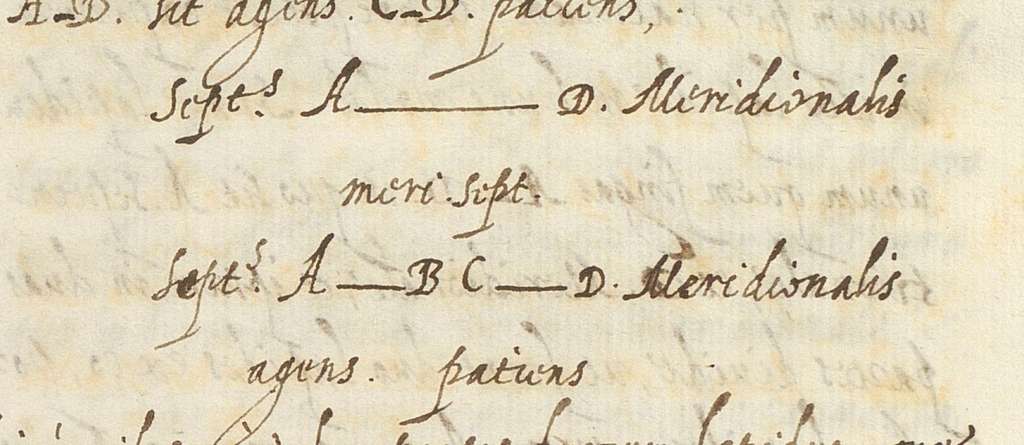 A_D. sit agens. C_D. patiens,
Sept.s A———D. Meridionalis
meri. sept.
Sept.s A—B C—D. Meridionalis
agens. patiens